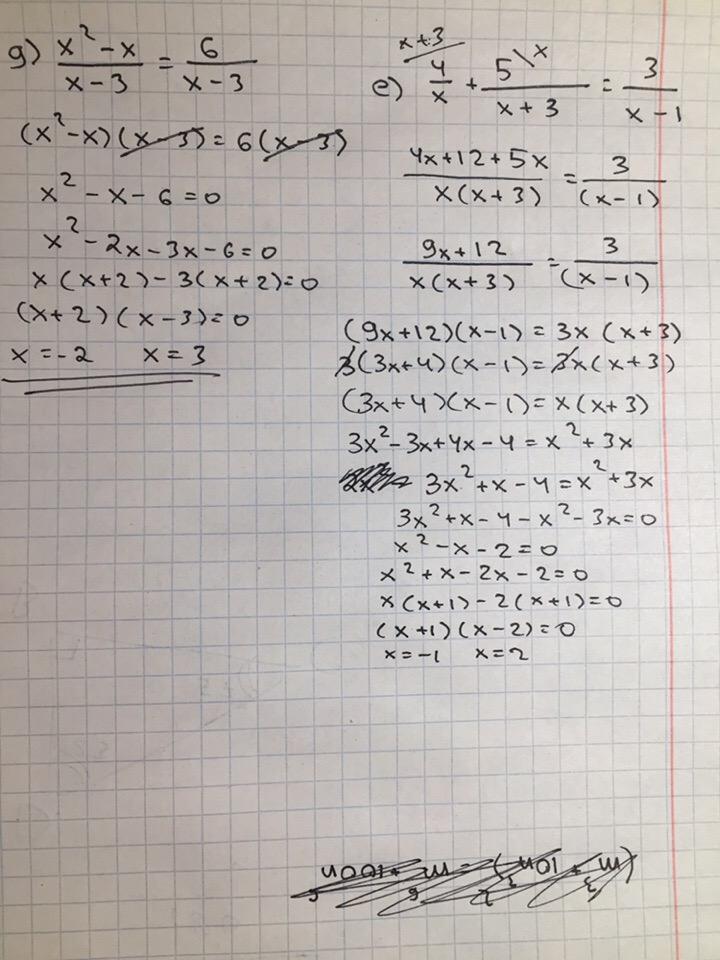 g) (x² - x)/(x - 3) = 6/(x - 3)
(x² - x)(x - 3) = 6(x - 3)
x² - x - 6 = 0
x² - 2x - 3x - 6 = 0
x(x + 2) - 3(x + 2) = 0
(x + 2)(x - 3) = 0
x = -2 x = 3
x + 3
e) 4/x + 5\x/(x + 3) = 3/(x - 1)
(4x + 12 + 5x)/(x(x + 3)) = 3/(x - 1)
(9x + 12)/(x(x + 3)) = 3/(x - 1)
(9x + 12)(x - 1) = 3x(x + 3)
3(3x + 4)(x - 1) = 3x(x + 3)
(3x + 4)(x - 1) = x(x + 3)
3x² - 3x + 4x - 4 = x² + 3x
3x² + x - 4 = x² + 3x
3x² + x - 4 - x² - 3x = 0
x² - x - 2 = 0
x² + x - 2x - 2 = 0
x(x + 1) - 2(x + 1) = 0
(x + 1)(x - 2) = 0
x = -1 x = 2